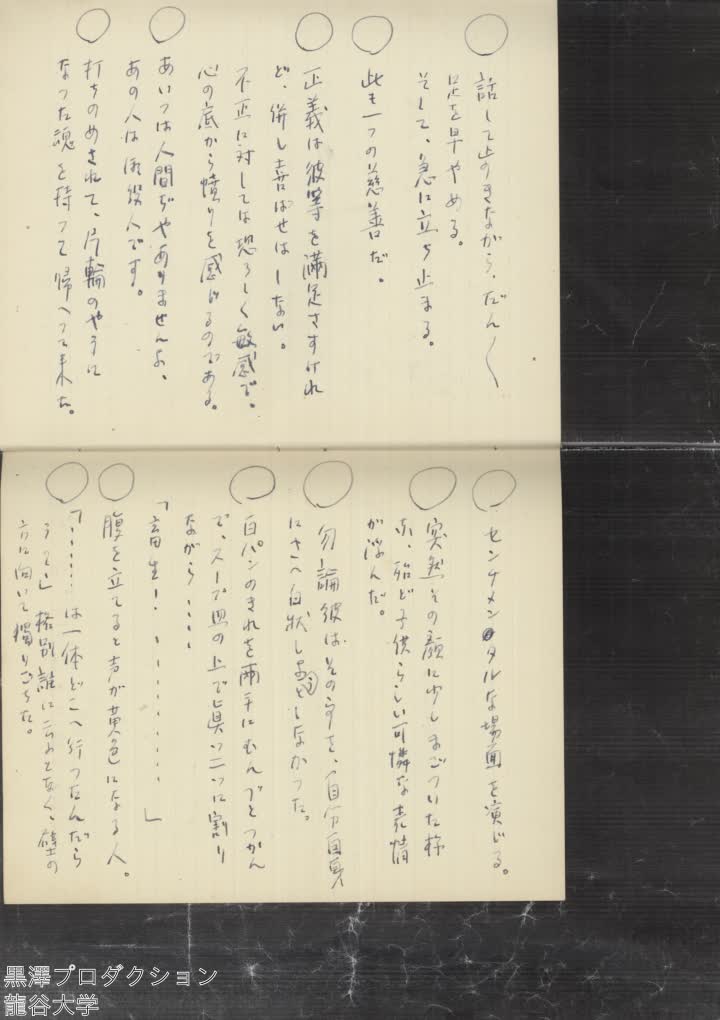 ○ 話して止のきながら、だん〳〵
足を早やめる。
そして、急に立ち止まる。
○ 此も一つの慈善だ。
○ 正義は彼等を満足さすけれ
ど、併し喜ばせはしない。
不正に対しては恐ろしく敏感で、
心の底から憤りを感じるのである。
○ あいつは人間ぢやありませんよ、
あの人は役人です。
○ 打ちのめされて、片輪のやうに
なつた魂を持つて帰へつて来た。
○ センチメンタルな場面を演じる。
○ 突然その顔に少しまごついた様
な、殆ど子供らしい可憐な表情
が浮んだ。
○ 勿論彼は、その事を、自分自身
にさへ白状しようとしなかつた。
○ 白パンのきれを両手にむんづとつかん
で、スープ皿の上で真ッ二つに割り
ながら……
「畜生!…………」
○ 腹を立てると声が黄色になる人。
○ 「………は一体どこへ行つたんだら
う?」格別誰に云ふとなく、壁の
方に向いて独りごちた。
黒澤プロダクション
龍谷大学